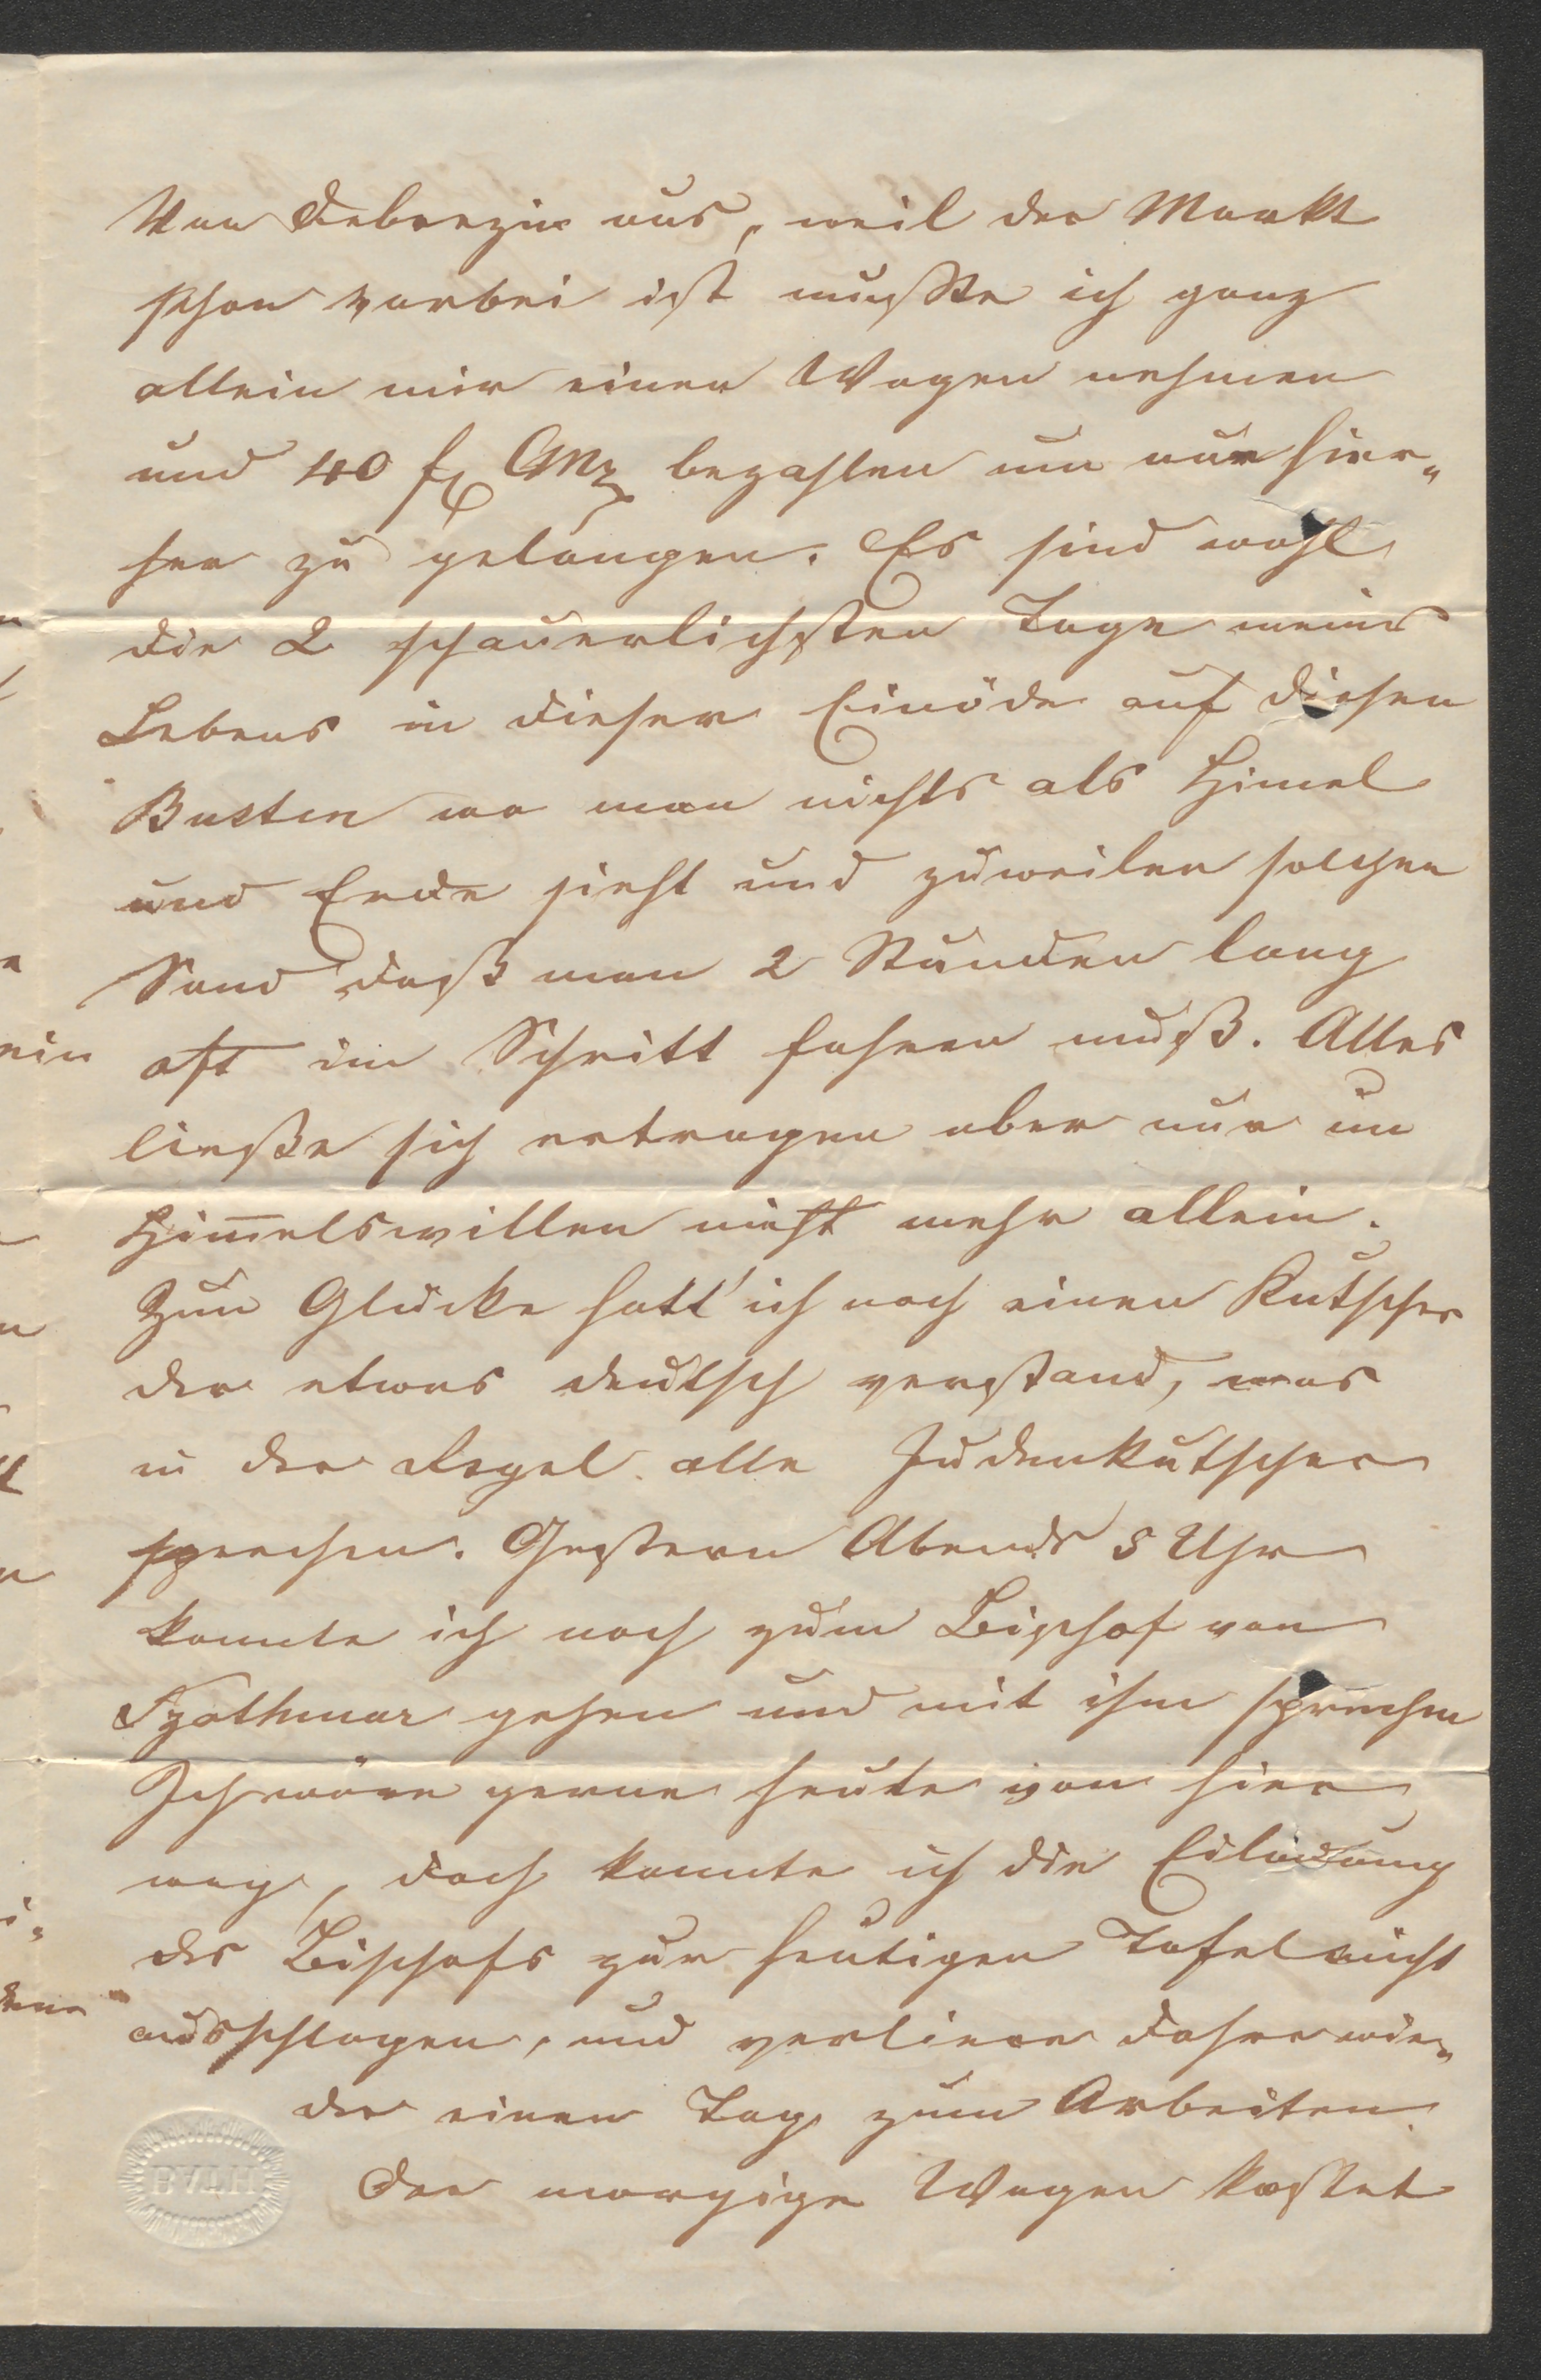 Von Debrezin aus, weil der Markt
schon vorbei ist mußte ich ganz
allein mir einen Wagen nehmen
und 40 f CMz bezahlen um nur hier„
her zu gelangen. Es sind wohl
die 2 schauerlichsten Tage meins
Lebens in dieser Einöde auf diesen
Busten wo man nichts als Himel
und Erde sieht und zuweilen solchen
Sand daß man 2 Stunden lang
oft im Schritt fahren muß. Alles
ließe sich ertragen aber nur um
Him̅elswillen nicht mehr allein.
Zum Glücke hatt' ich noch einen Kutscher
der etwas deutsch verstand, was
in der Regel alle Judenkutscher
sprechen. Gestern Abends 5 Uhr
konnte ich noch zum Bischof von
Szathmar gehen und mit ihm sprechen
Ich wäre gerne heute von hier
weg, doch konnte ich die Eiladung
des Bischofs zur heutigen Tafel nicht
ausschlagen, und verliere daher wie„
der einen Tag zum Arbeiten
Der morgige Wagen kostet
ein
BATH